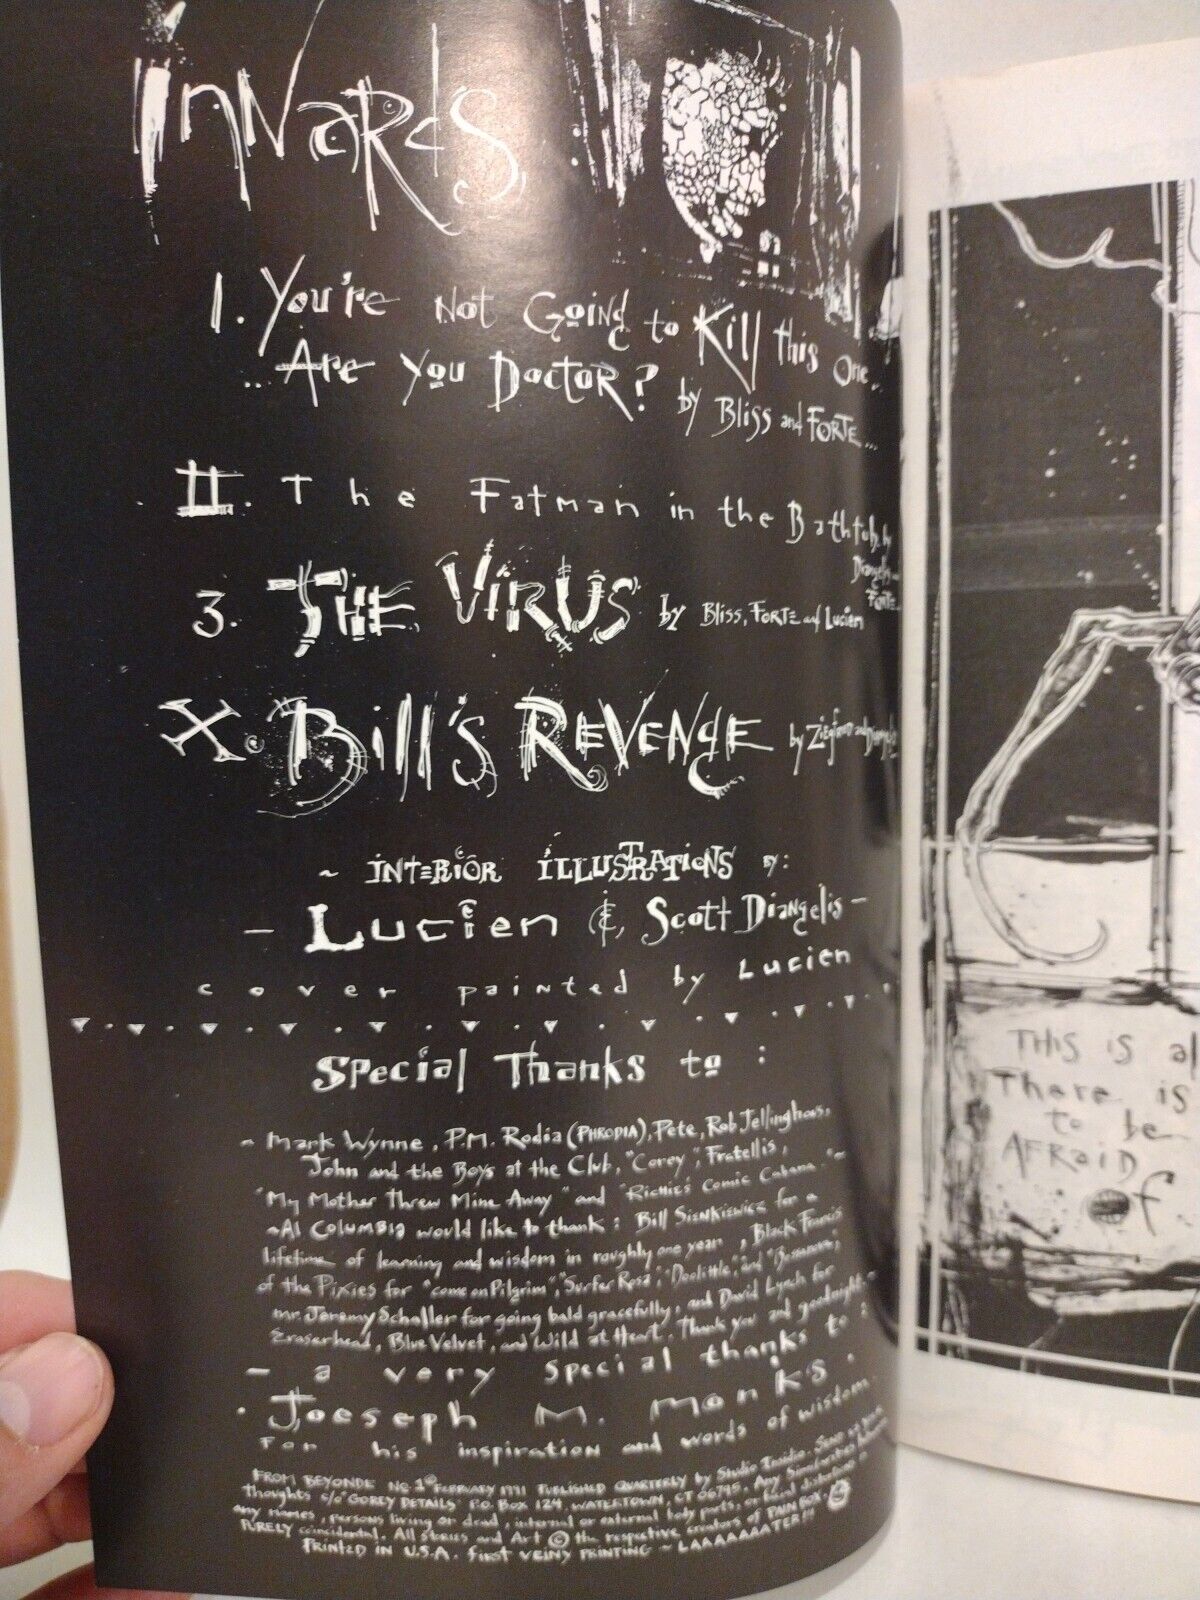 inNards
1. You're Not Going to Kill this One..
...Are You Doctor? by Bliss and FORTE...
II. The Fatman in the Bathtub, by
Diangelis and
FORTE..
3. THE VIRUS by Bliss, FORTE and Lucien
X. Bill's REVENgE by
~ INTERIOR ILLUSTRATIONS BY:
- Lucien &, Scott Diangelis -
cover painted by Lucien
Special Thanks to :
~ Mark Wynne, P.M. Rodia (PHRODIA), Pete, Rob Jellinghaus,
John and the Boys at the Club, "Corey", Fratellis,
"My Mother Threw Mine Away" and "Richies' Comic Cabana." ~
~Al COLUMBIA would like to thank: Bill SIENKIEWICZ for a
lifetime of learning and wisdom in roughly one year, Black Francis
of the Pixies for "come on Pilgrim", "Surfer Rosa", "Doolittle", and "Bossanova",
mr. Jeremy Schaller for going bald gracefully, and David Lynch for
Eraserhead, Blue Velvet, and Wild at Heart. Thank you and goodnight. ~
- a very special thanks to :
. Joeseph M. Monks .
For his inspiration and words of wisdom.
FROM BEYONDE NO. 1 © FEBRUARY 1991 PUBLISHED QUARTERLY by Studio Insidio. Send
thoughts c/o "GOREY DETAILS" P.O. Box 124, WATERTOWN, CT 06795. Any Similarities between
any names, persons living or dead, internal or external body parts, or facial distortions is
PURELY coincidental. All stories and Art © the respective creators of PAIN BOX.
PRINTED IN U.S.A. first VEINY PRINTING ~ LAAAAAATER!!
THIS IS al
There is
to be
AFRAID
Of